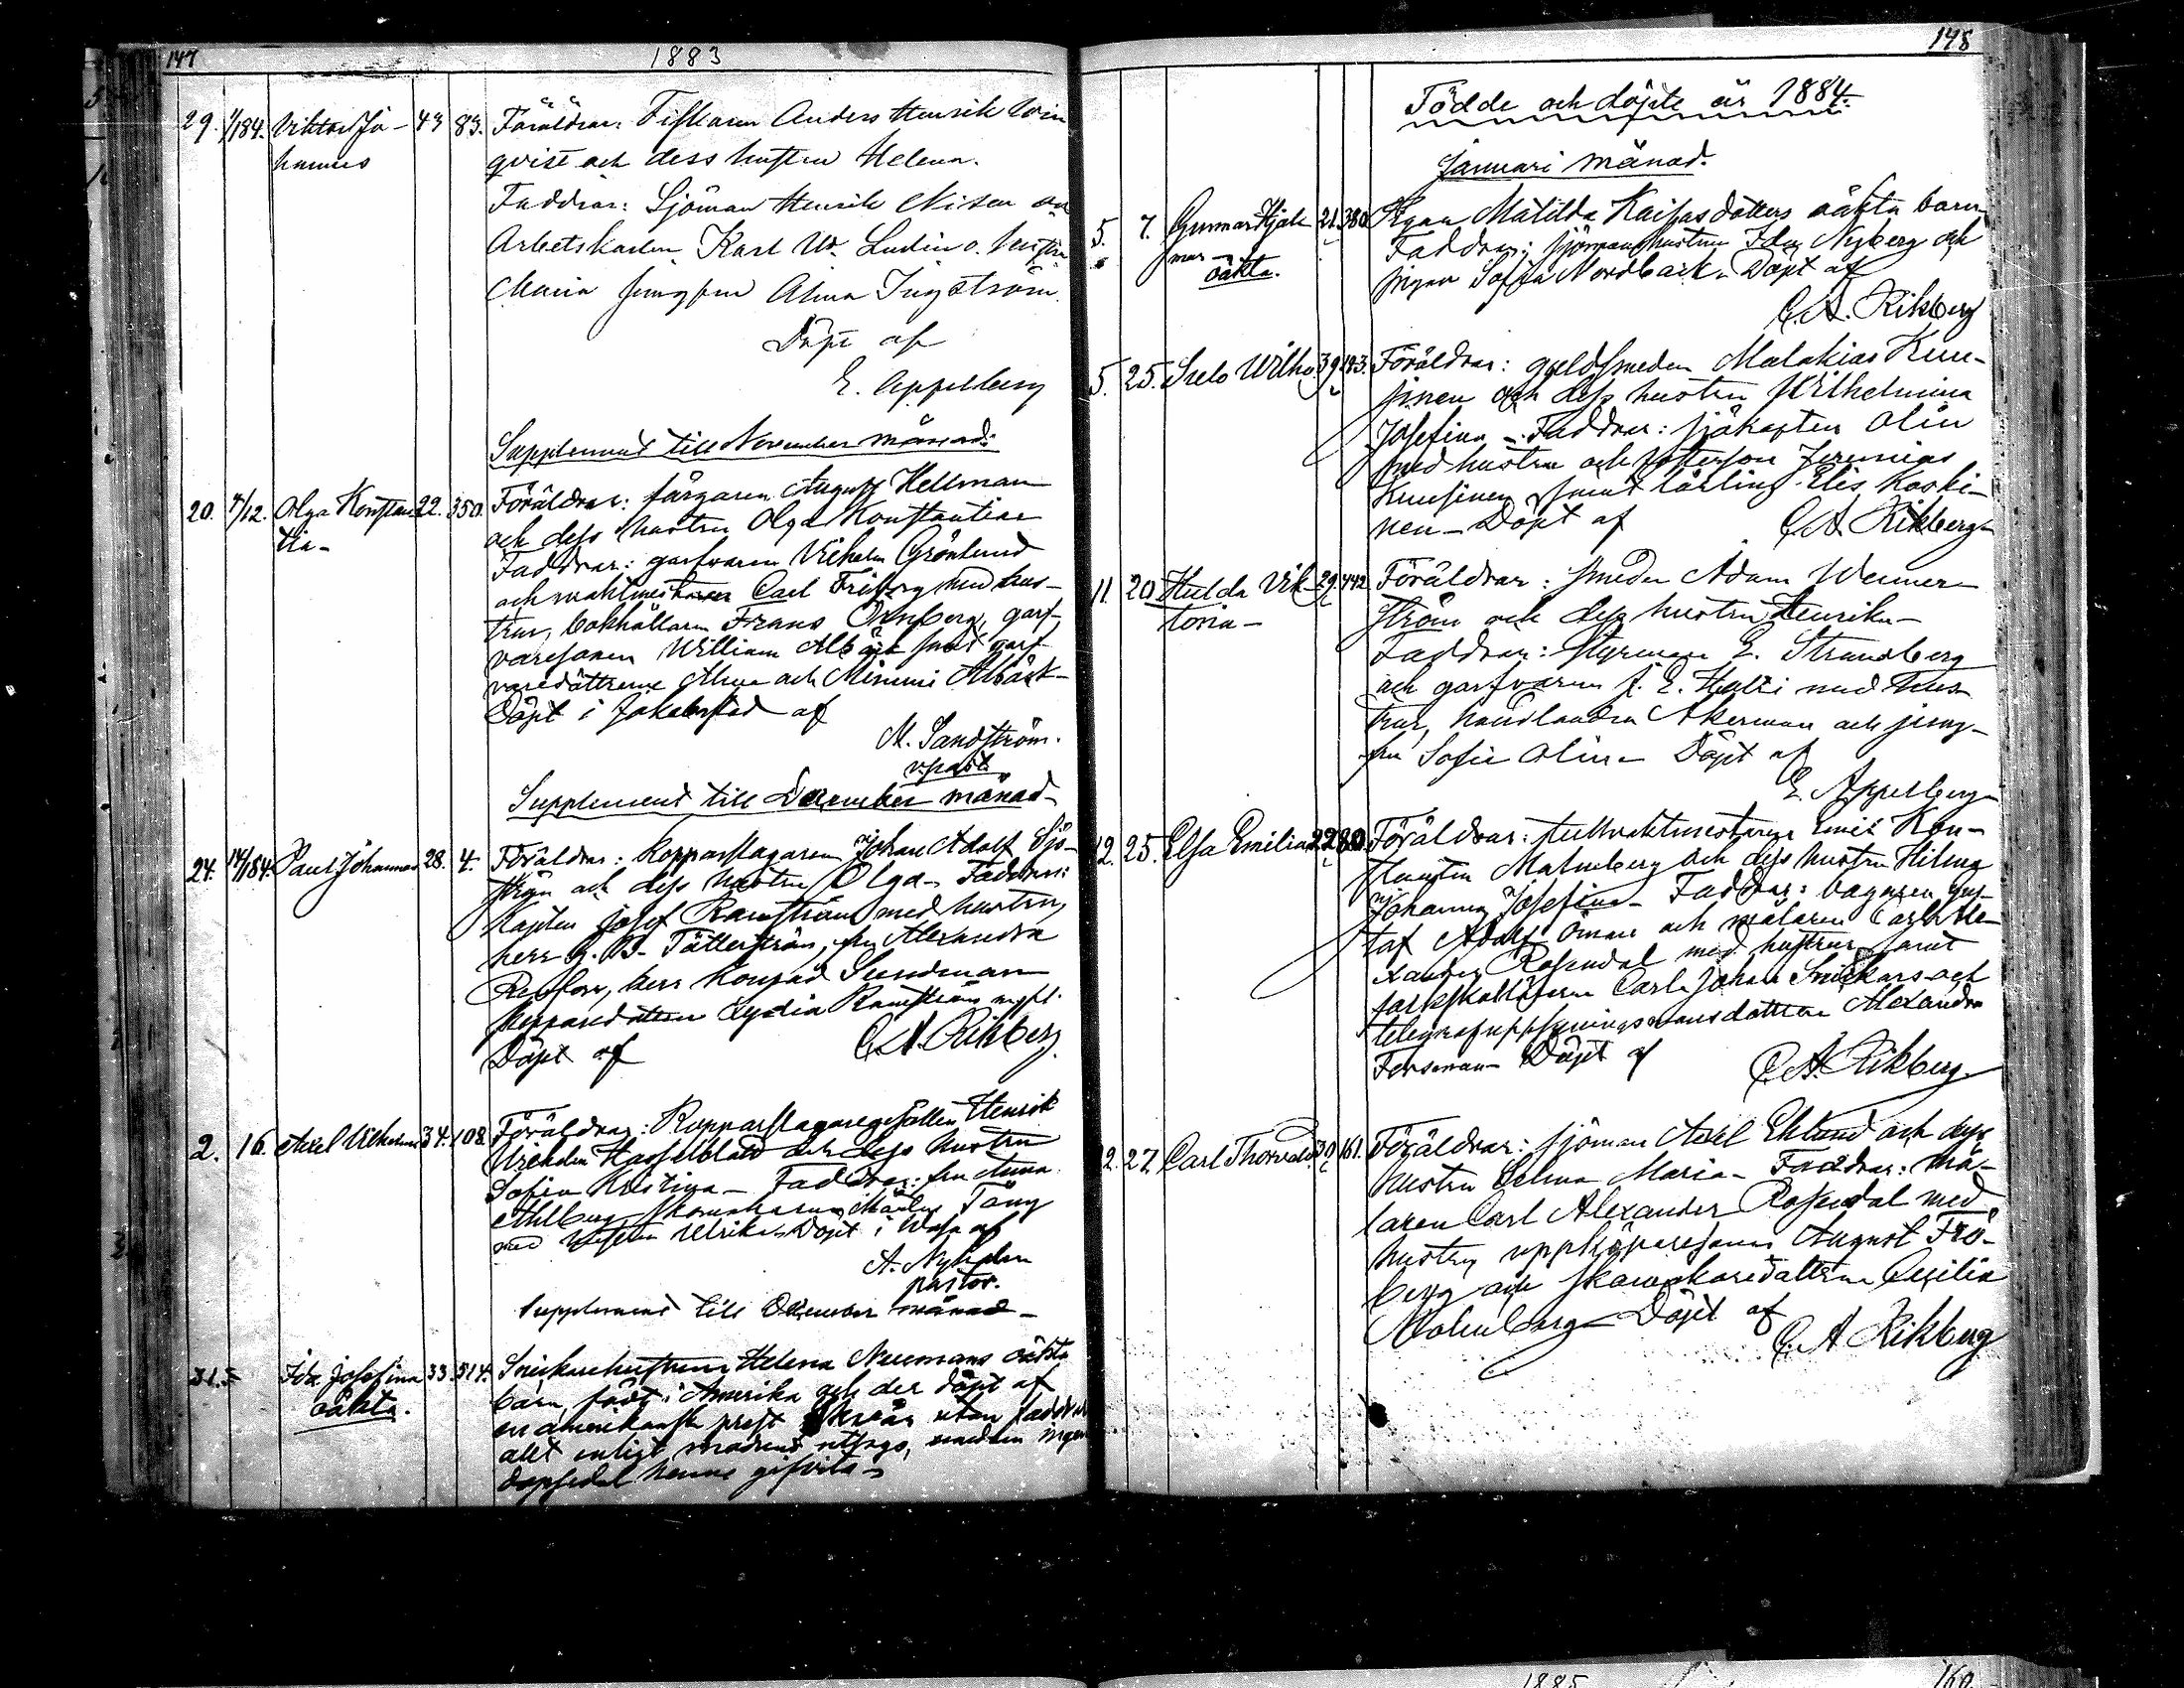 147
1883
29. 1/1 84. Viktor Jo- 43 83. Föräldrar: Fiskaren Anders Henrik Win
hannes qvist och dess hustru Helena.
Faddrar: Sjöman Henrik Nisen
Arbetskarlen Karl W. Ludin o. hustru
Maria Jungfrun Alma Ingström.
Döpt af
E. Appelberg
Supplement till November månad:
20. 7/12. Olga Konstan- 22. 350. Föräldrar: färgaren August Hellman
tia- och dess hustru Olga Konstantia
Faddrar: garfvaren Vilhelm Grönlund
och Carl Friberg med hus-
trur, bokhållaren Frans garf-
varesonen William Albäck samt garf-
varedöttrarne Alma och Mimmi Albäck-
Döpt i Jakobstad af
M. Sandström.
v.past.
Supplement till December månad-
24. 14/1 84. Paul Johannes 28. 4. Föräldrar: Kopparslagaren Johan Adolf Sjö-
ström och dess hustru Olga- Faddrar:
Kapten Josef Ramström med hustru,
herr Tätterström, fru Alexandra
herr Konrad Sundman
Skepparedottren Lydia Ramström
Döpt af C. A. Rikberg.
2. 16. Axel Vilhelm 34. 108. Föräldrar: Kopparslagaregesällen Henrik
Vilhelm Hasselblatt och dess hustru
Sofia Kristina- Faddrar: fru Anna
Ahlberg, skomakaren Täng
med hustru Ulrika. Döpt i Wasa af
A. Nylund
pastor.
Supplement till December månad-
31. Ida Josefina 33. 514. Snickarehustrun Helena Neumans oäkta
oäkta. barn, född i Amerika och der döpt af
en amerikansk prest utan faddrar
allt enligt modrens utsago, emedan ingen
dopsedel henne gifvits-
148
Födde och döpte år 1884.
Januari månad.
5. 7. Gunnar Hjal- 21. 380. Pigan Matilda Kaifasdotters oäkta barn-
mar- Faddrar: sjömanshustrun Ida Nyberg och
oäkta. pigan Sofia Nordback- Döpt af
C. A. Rikberg
5. 25. Wilho. 39. 193. Föräldrar: guldsmeden Malakias Kuu-
sinen och dess hustru Wilhelmina
Josefina - Faddrar: sjökapten Olin
med hustru och Jeremias
Kuusinen samt lärling Elis Koski-
nen- Döpt af C. A. Rikberg-
11. 20 Hulda Vik- 29. 442. Föräldrar: smeden Adam Wenner-
toria- ström och dess hustru Henrika-
Faddrar: styrman E. Strandberg
och garfvaren J. E. med hus-
trur, handlanden Åkerman och jung-
fru Sofie Olin- Döpt af
E. Appelberg-
12. 25. Elsa Emilia 22 80. Föräldrar: tullvaktmästaren Emil Kon-
stantin Malmberg och dess hustru Hilma
Johanna Josefina- Faddrar: bagaren Gus-
taf Adolf Öman och målaren Carl Ale-
xander Rosendal med hustrur samt
folkskolläraren Carl Johan Snickars och
telegrafuppsyningsmansdottren Alexandra
Forsman- Döpt af C. A. Rikberg.
12. 27. Carl Thorvald. 30. 161. Föräldrar: sjöman Axel Eklund och dess
hustru Selma Maria- Faddrar: må-
laren Carl Alexander Rosendal med
hustru, uppköparesonen August Frö-
berg och skomakaredottren Cecilia
Malmberg- Döpt af
C. A Rikberg
1885
160.